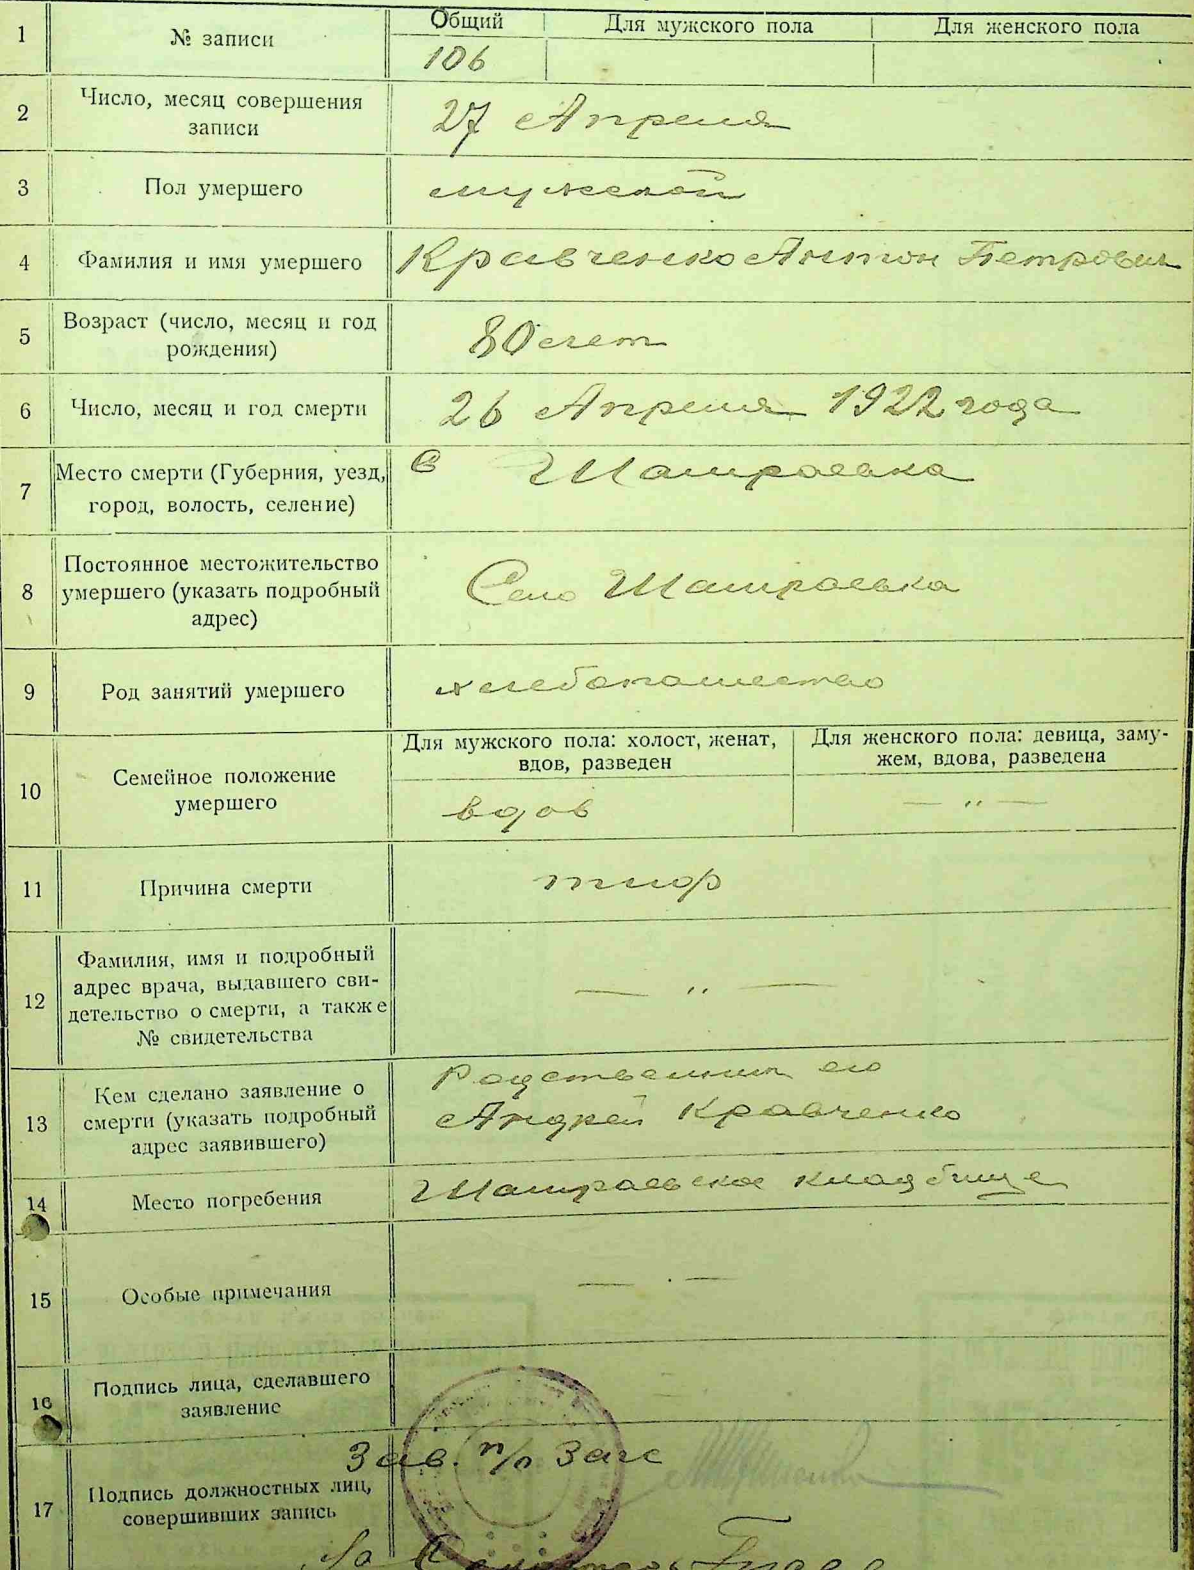 1 № записи Общий Для мужского пола Для женского пола
106
2 Число, месяц совершения
записи
27 Апреля
3 Пол умершего мужской
4 Фамилия и имя умершего Кравченко Антон Петрович
5 Возраст (число, месяц и год
рождения)
80 лет
6 Число, месяц и год смерти 26 Апреля 1922 года
7 Место смерти (Губерния, уезд,
город, волость, селение)
С Шамраевка
8 Постоянное местожительство
умершего (указать подробный
адрес)
Село Шамраевка
9 Род занятий умершего хлебопашество
10 Семейное положение
умершего
Для мужского пола: холост, женат,
вдов, разведен
Для женского пола: девица, заму-
жем, вдова, разведена
вдов — „ —
11 Причина смерти тиф
12 Фамилия, имя и подробный
адрес врача, выдавшего сви-
детельство о смерти, а также
№ свидетельства
— „ —
13 Кем сделано заявление о
смерти (указать подробный
адрес заявившего)
Родственник его
Андрей Кравченко
14 Место погребения Шамраевское кладбище
15 Особые примечания — . —
16 Подпись лица, сделавшего
заявление
17 Подпись должностных лиц,
совершивших запись
Зав. п/о Загс